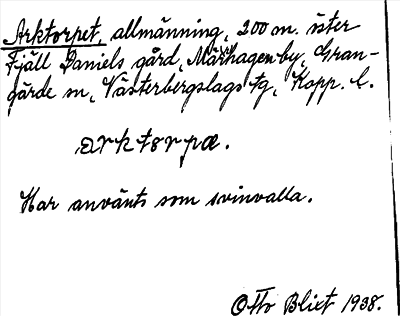 Arktorpet, allmänning, 200 m. öster
Fjäll Daniels gård, Mårhagen by, Gran-
gärde sn, Västerbergslags tg, Kopp. l.
arktorpæ.
Har använts som svinvalla.
Otto Blixt 1938.